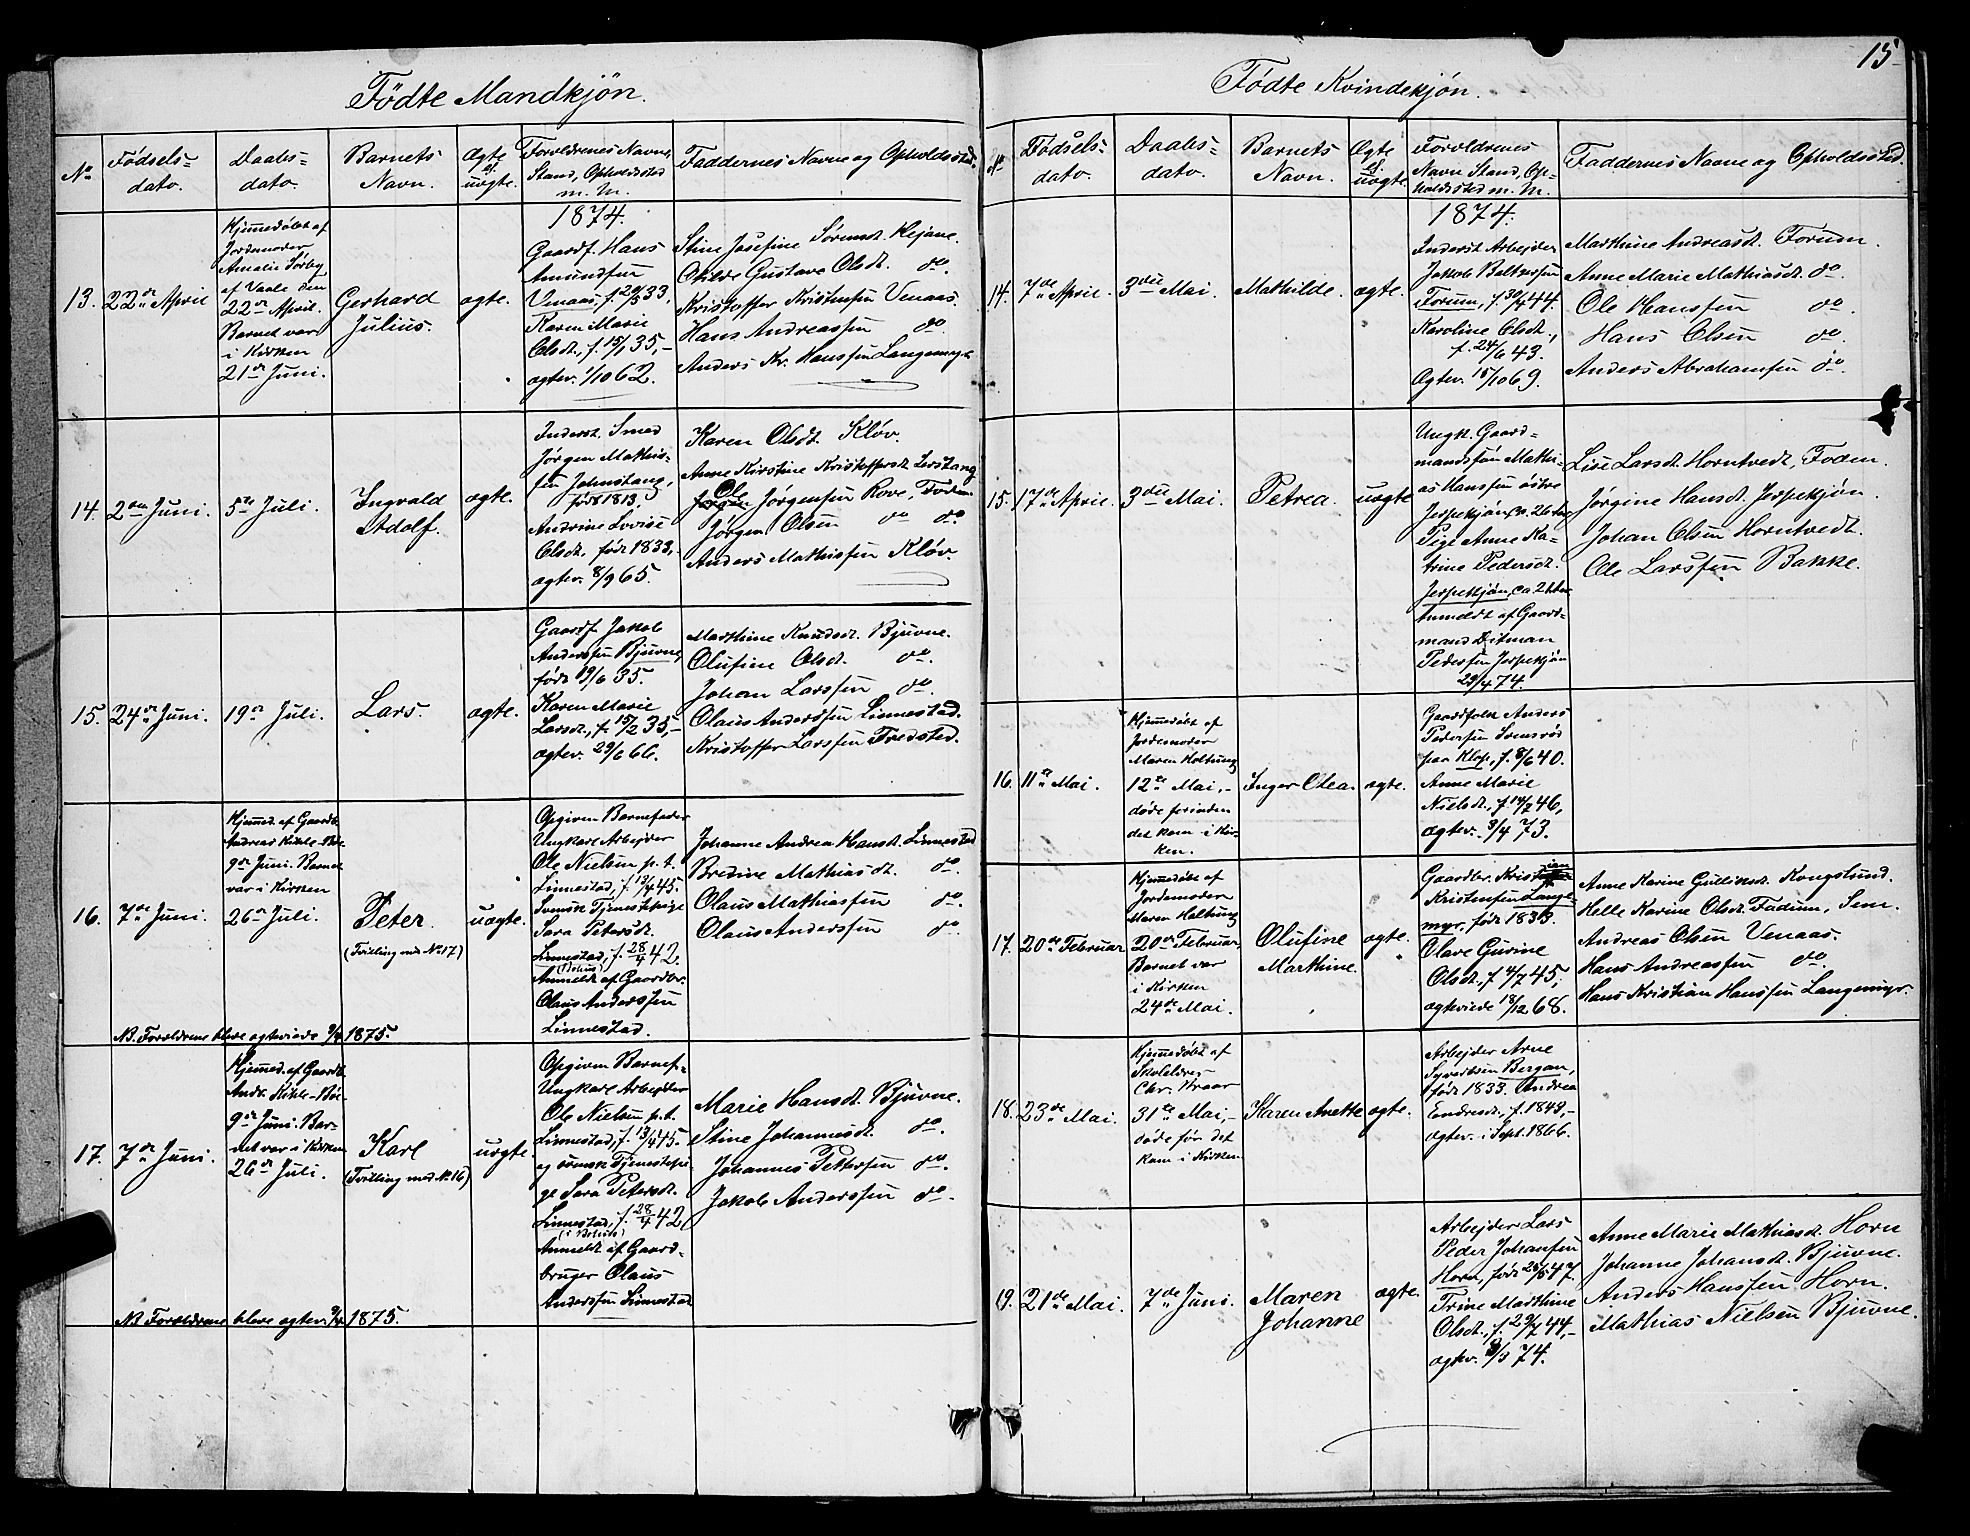 15
Fødte Mandkjøn.
No
Fødsels=
dato.
Daabs=
dato.
Barnets
Navn.
Ægte
el.
uægte.
Forældrenes Navne,
Stand, Opholdssted
m. M.
Faddernes Navne og Opholdssted.
1874.
13.
22de April
Hjemmedøbt af
Jordemoder
Amalie Sørby
af Vaale den
22de April.
Barnet var
i Kirken
21de Juni.
Gerhard
Julius.
ægte.
Gaardf. Hans
Amundsen
Venaas, f. 20/3 33,
Karen Marie
Olsdt., f. 15/1 35,-
ægtev. 1/10 62.
Stine Josefine Sørensdt. Rejane.
Otilde Gustava Olsdt. do.
Kristoffer Kristensen Venaas.
Hans Andreassen do.
Anders Kr. Hanssen Langemyr.
14.
2den Juni.
5te Juli.
Ingvald
Adolf.
ægte.
Inderst. Smed
Jørgen Mathis-
sen Johnstang,
født 1813,
Andrine Lovise
Olsdt. født 1833,-
ægtev. 8/9 65.
Karen Olsdt. Kløv.
Anne Kirstine Kristoffersdt. Lerstang
Ole Jørgensen Rove, Foden.
Jørgen Olsen do do.
Anders Mathissen Kløv.
15.
24de Juni.
19de Juli.
Lars.
ægte.
Gaardf. Jakob
Anderssen Bjuvne,
født 19/6 35.
Karen Marie
Larsdt., f. 15/2 35,-
ægtev. 29/6 66.
Marthine Knudsdt. Bjuvne.
Olufine Olsdt. do.
Johan Larssen do.
Olaus Anderssen Linnestad.
Kristoffer Larssen Fredsted.
16.
7de Juni.
Hjemmed. af Gaardb.
Andreas Kihle-Bøe
9de Juni. Barnet
var i Kirken
26de Juli.
Peter.
(Tvilling med No 17)
uægte.
Opgiven Barnefader
Ungkarl Arbejder
Ole Nielsen p. t.
Linnestad, f. 13/4 45.
Svensk Tjenestepige
Sara Petersdt.
Linnestad, f. 28/4 42.
(i Bohus)
Anmeldt af Gaardbr.
Olaus Anderssen
Linnestad.
Johanne Andrea Hansdt. Linnestad
Bredine Mathiasdt. do.
Olaus Mathiassen do.
Olaus Anderssen do.
NB. Forældrene bleve ægteviede 9/4 1875.
17.
7de Juni.
Hjemmed. af Gaardb.
Andr. Kihle-Bøe
9de Juni. Bar-
net var i Kirken
26de Juli.
Karl
(Tvilling med No 16)
uægte.
Opgiven Barnef.
Ungkarl Arbejder
Ole Nielsen p. t.
Linnestad, f. 13/4 45.
og svensk Tjenestepi-
ge Sara Petersdt.
Linnestad, f. 28/4 42
(i Bohus)
Anmeldt af Gaard-
bruger Olaus
Anderssen Linnestad
Marie Hansdt. Bjuvne.
Stine Johannesdt. do.
Johannes Pettersen do.
Jakob Anderssen do.
NB. Forældrene bleve ægtev. 9/4 1875.
Fødte Kvindekjøn.
No
Fødsels=
dato.
Daabs=
dato.
Barnets
Navn.
Ægte
el.
uægte.
Forældrenes
Navn Stand, Op-
holdssted m. M.
Faddernes Navne og Opholdssted.
1874.
14.
7de April.
3die Mai.
Mathilde.
ægte.
Inderst Arbejder
Jakob Baltzersen
Forum, f. 30/4 44.
Karoline Olsdt.,
f. 24/6 43.
Ægtev. 15/10 69.
Marthine Andreasdt. Forum.
Anne Marie Mathiasdt. do.
Ole Hanssen do.
Hans Olsen do.
Anders Abrahamsen do.
15.
17de April.
3die Mai.
Petrea.
uægte
Ungk. Gaard=
mandssøn Mathi-
as Hanssen østre
Jerpekjøn, ca. 26 Aar,
Pige Anne Ka-
trine Pedersdt.
Jerpekjøn, ca 21 Aar
Anmeldt af Gaard-
mand Ditman
Pederssen Jerpekjøn
29/4 74.
Lise Larsdt. Horntvedt, Foden.
Jørgine Hansdt. Jerpekjøn.
Johan Olsen Horntvedt.
Ole Larssen Bakke.
16.
11te Mai.
Hjemmedøbt af
Jordemoder
Maren Holtung
12te Mai,-
døde forinden
det kom i Kir-
ken.
Inger Olea.
ægte.
Gaardfolk Anders
Pedersen Sverisrød
paa Klop, f. 8/6 40.
Anne Marie
Nielsdt., f. 14/2 46,
ægtev. 3/4 73.
17.
20de Februar
Hjemmedøbt af
Jordemoder
Maren Holtung
20de Februar,
Barnet var
i Kirken
24de Mai.
Olufine
Marthine.
ægte.
Gaardbr. Kristian
Kristensen Lange-
myr, født 1833.
Olave Gurine
Olsdt., f. 4/7 45,
ægteviede 18/12 68.
Anne Karine Gulliksdt. Kongslund.
Helle Karine Olsdt. Fadum, Sem.
Andreas Olsen Venaas.
Hans Andreassen do.
Hans Kristian Hanssen Langemyr.
18.
23de Mai.
Hjemmedøbt af
Skolelærer
Chr. Braar
31te Mai,-
døde før det
kom i Kirken
Karen Anette
ægte.
Arbejder Arne
Syvertsen Bergan,
født 1833. Andrea
Endresdt., f. 1843,-
ægtev. i Sept. 1866.
19.
21de Mai.
7de Juni.
Maren
Johanne
ægte.
Arbejder Lars
Peder Johansen
Horn, født 25/5 47.
Trine Marthine
Olsdt., f. 29/7 44,-
ægtev. 8/3 74.
Anne Marie Mathiasdt. Horn
Johanne Johansdt. Bjuvne.
Anders Hanssen Horn.
Mathias Nielsen Bjuvne.